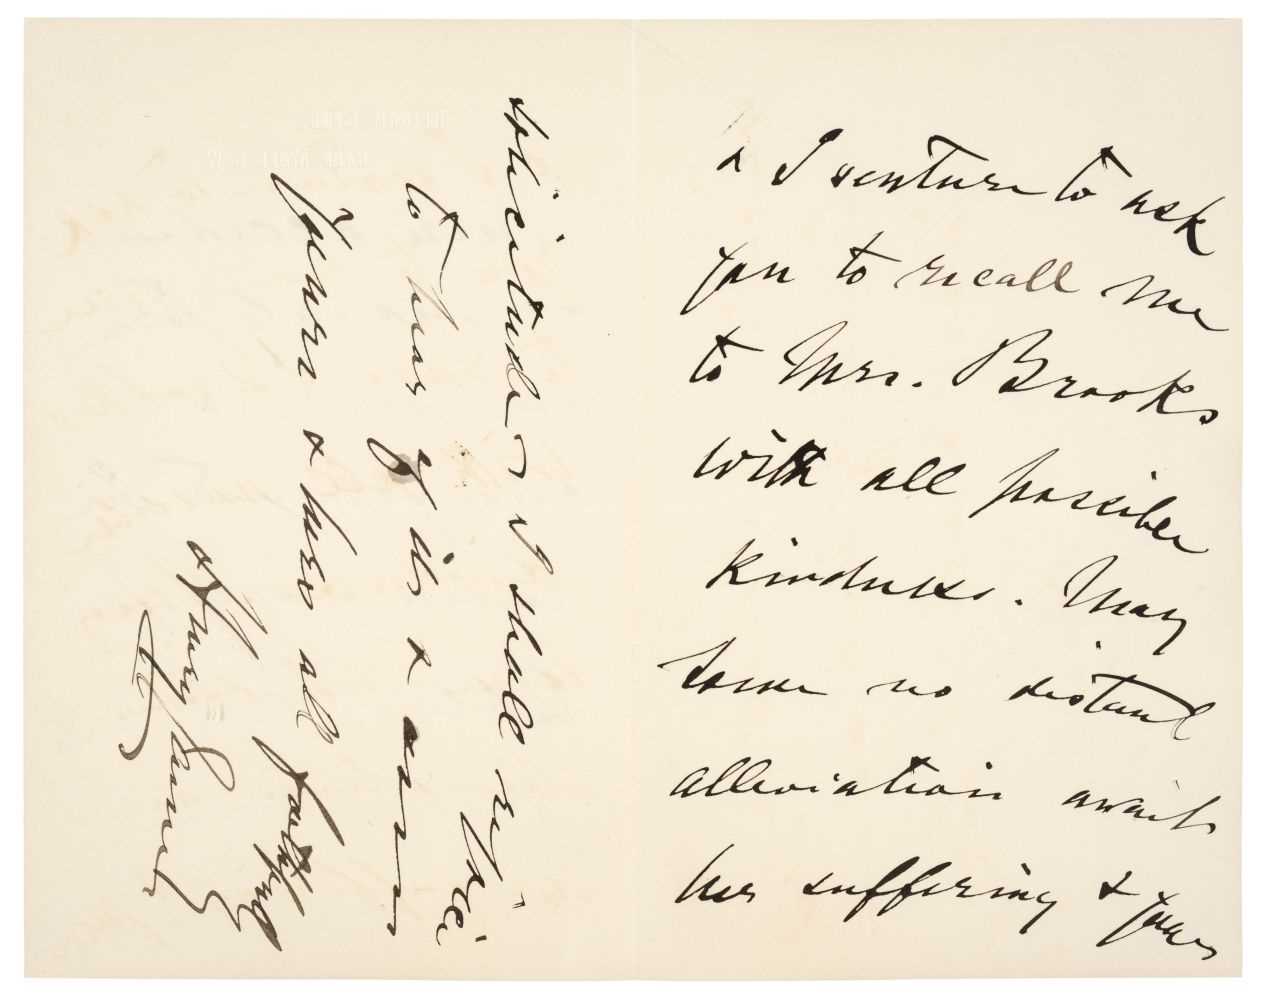 & I venture to ask
you to recall me
to Mrs. Brooks
with all possible
kindness. May
some no distant
alleviation await
her suffering & your
solicitude. I shall rejoice
to hear of its &
Yours & hers all faithfully
Henry James